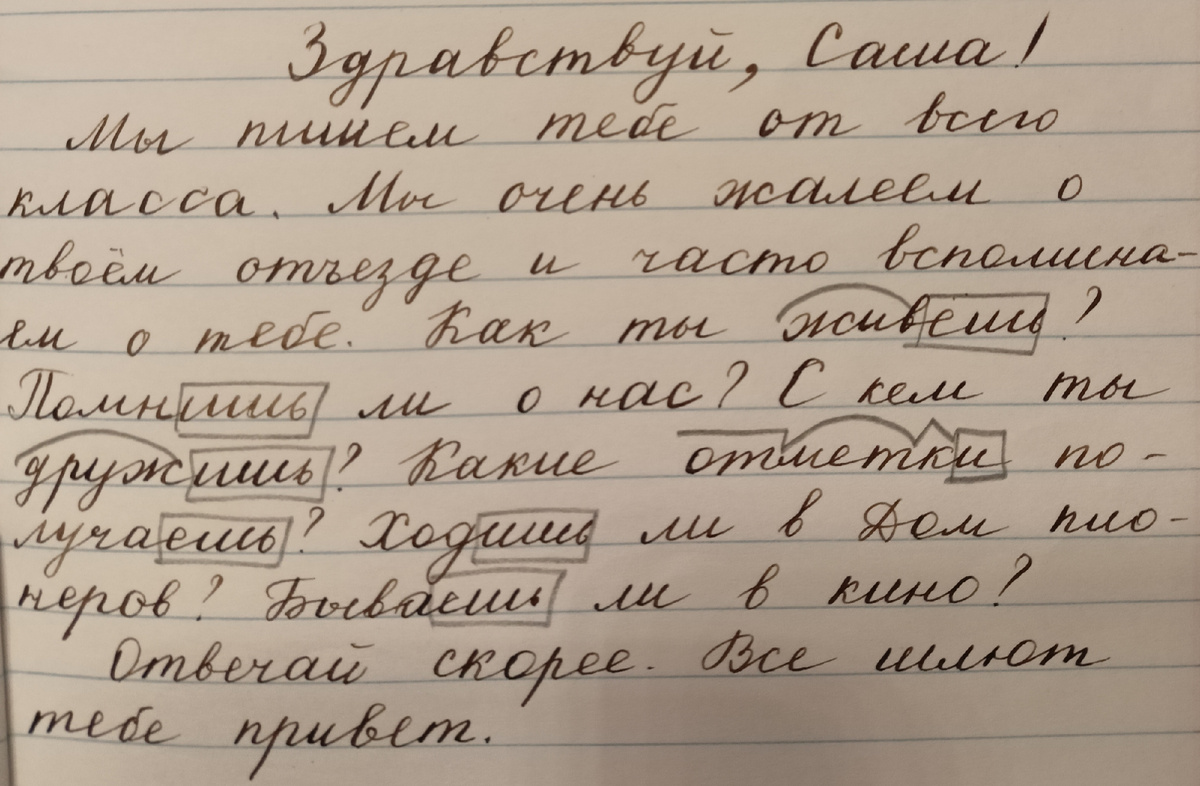 Здравствуй, Саша!
Мы пишем тебе от всего
класса. Мы очень жалеем о
твоём отъезде и часто вспомина-
ем о тебе. Как ты живёшь?
Помнишь ли о нас? С кем ты
дружишь? Какие отметки по-
лучаешь? Ходишь ли в Дом пио-
неров? Бываешь ли в кино?
Отвечай скорее. Все шлют
тебе привет.